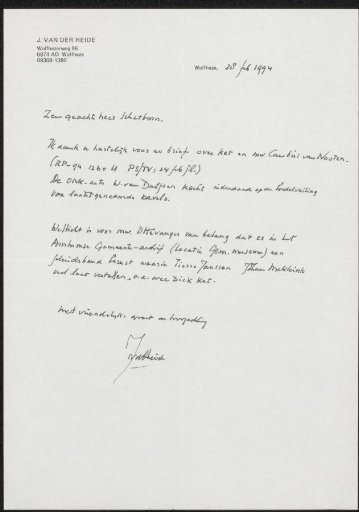 J. VAN DER HEIDE
Wolfhezerweg 96
6874 AD Wolfheze
08308-1380
Wolfheze, 28 feb 1994
Zeer geachte heer Schatborn.
Ik dank u hartelijk voor uw brief over Ket en mw Cambier van Nooten.
(RP-94 1260 PS/TV: 24/fb/)
De Ohk. arts W. van Dalfsen kocht inderdaad op een boekveiling
van laatstgenoemde kavels.
Wellicht is voor mw Ottevanger van belang dat er in het
Arnhemse Gemeente-archief (Locatie Gem. museum) een
geluidsband berust waarin Pierre Janssen Johan Mekkink
veel laat vertellen, o.a. over Dick Ket.
Met vriendelijke groet en hoogachting